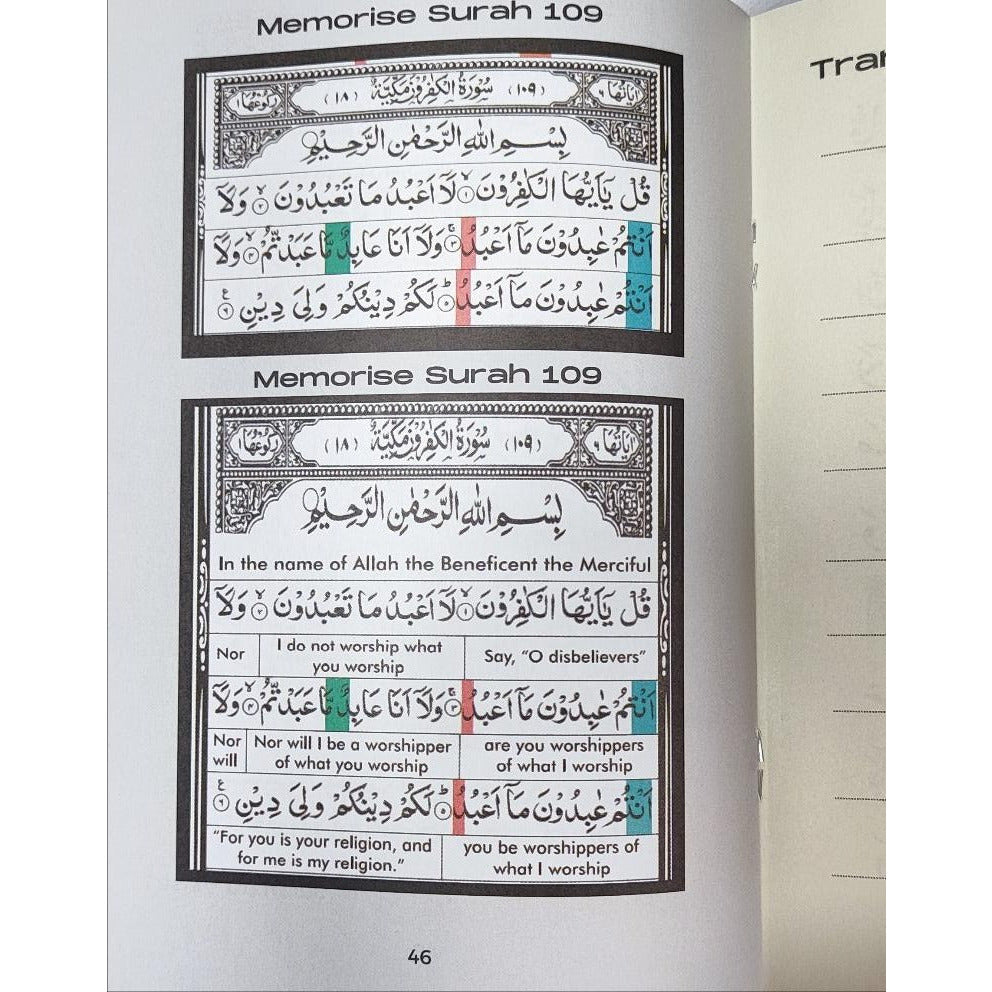 Memorise Surah 109
اٰيَاتُهَا ٦ (١٠٩) سُوْرَةُ الْكٰفِرُوْنَ مَكِّيَّةٌ (١٨) رُكُوْعُهَا ١
بِسْمِ اللّٰهِ الرَّحْمٰنِ الرَّحِيْمِ
قُلْ يٰٓاَيُّهَا الْكٰفِرُوْنَ ۙ۝١ لَآ اَعْبُدُ مَا تَعْبُدُوْنَ ۙ۝٢ وَلَآ
اَنْتُمْ عٰبِدُوْنَ مَآ اَعْبُدُ ۚ۝٣ وَلَآ اَنَا عَابِدٌ مَّا عَبَدْتُّمْ ۙ۝٤ وَلَآ
اَنْتُمْ عٰبِدُوْنَ مَآ اَعْبُدُ ؕ۝٥ لَكُمْ دِيْنُكُمْ وَلِيَ دِيْنِ ۝٦ ع
Memorise Surah 109
اٰيَاتُهَا ٦ (١٠٩) سُوْرَةُ الْكٰفِرُوْنَ مَكِّيَّةٌ (١٨) رُكُوْعُهَا ١
بِسْمِ اللّٰهِ الرَّحْمٰنِ الرَّحِيْمِ
In the name of Allah the Beneficent the Merciful
قُلْ يٰٓاَيُّهَا الْكٰفِرُوْنَ ۙ۝١ لَآ اَعْبُدُ مَا تَعْبُدُوْنَ ۙ۝٢ وَلَآ
Say, “O disbelievers”
I do not worship what
you worship
Nor
اَنْتُمْ عٰبِدُوْنَ مَآ اَعْبُدُ ۚ۝٣ وَلَآ اَنَا عَابِدٌ مَّا عَبَدْتُّمْ ۙ۝٤ وَلَآ
are you worshippers
of what I worship
Nor will I be a worshipper
of what you worship
Nor
will
اَنْتُمْ عٰبِدُوْنَ مَآ اَعْبُدُ ؕ۝٥ لَكُمْ دِيْنُكُمْ وَلِيَ دِيْنِ ۝٦ ع
you be worshippers of
what I worship
“For you is your religion, and
for me is my religion.”
46